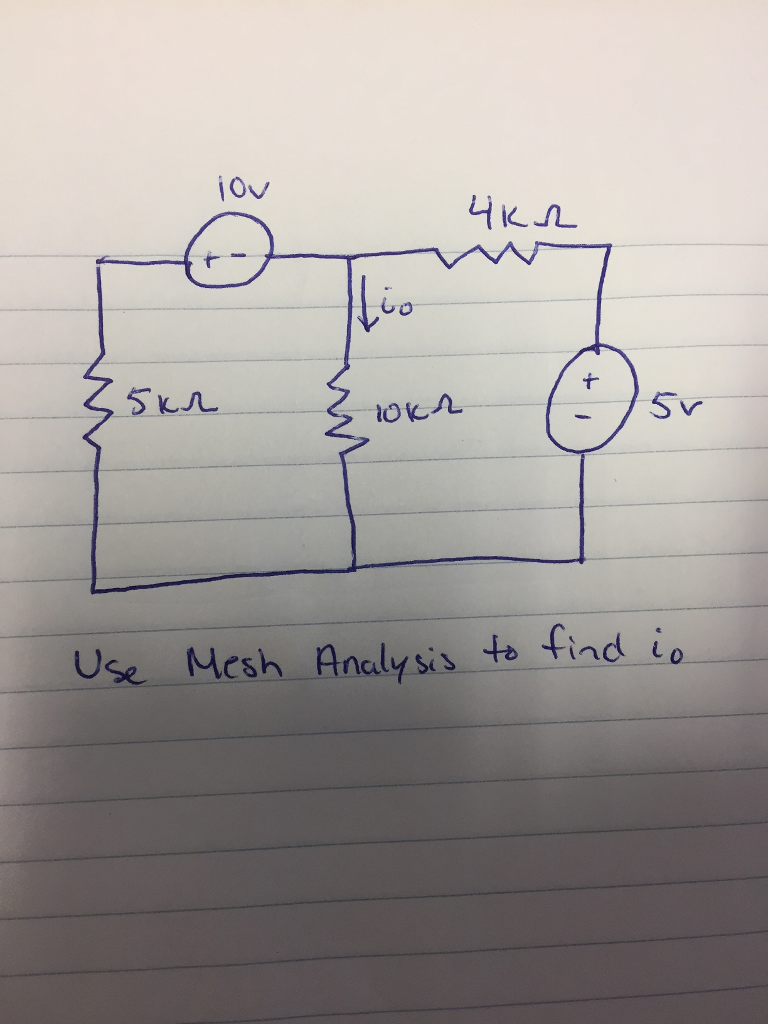 10v
4KΩ
+ -
io
5KΩ
10KΩ
+
-
5v
Use Mesh Analysis to find io